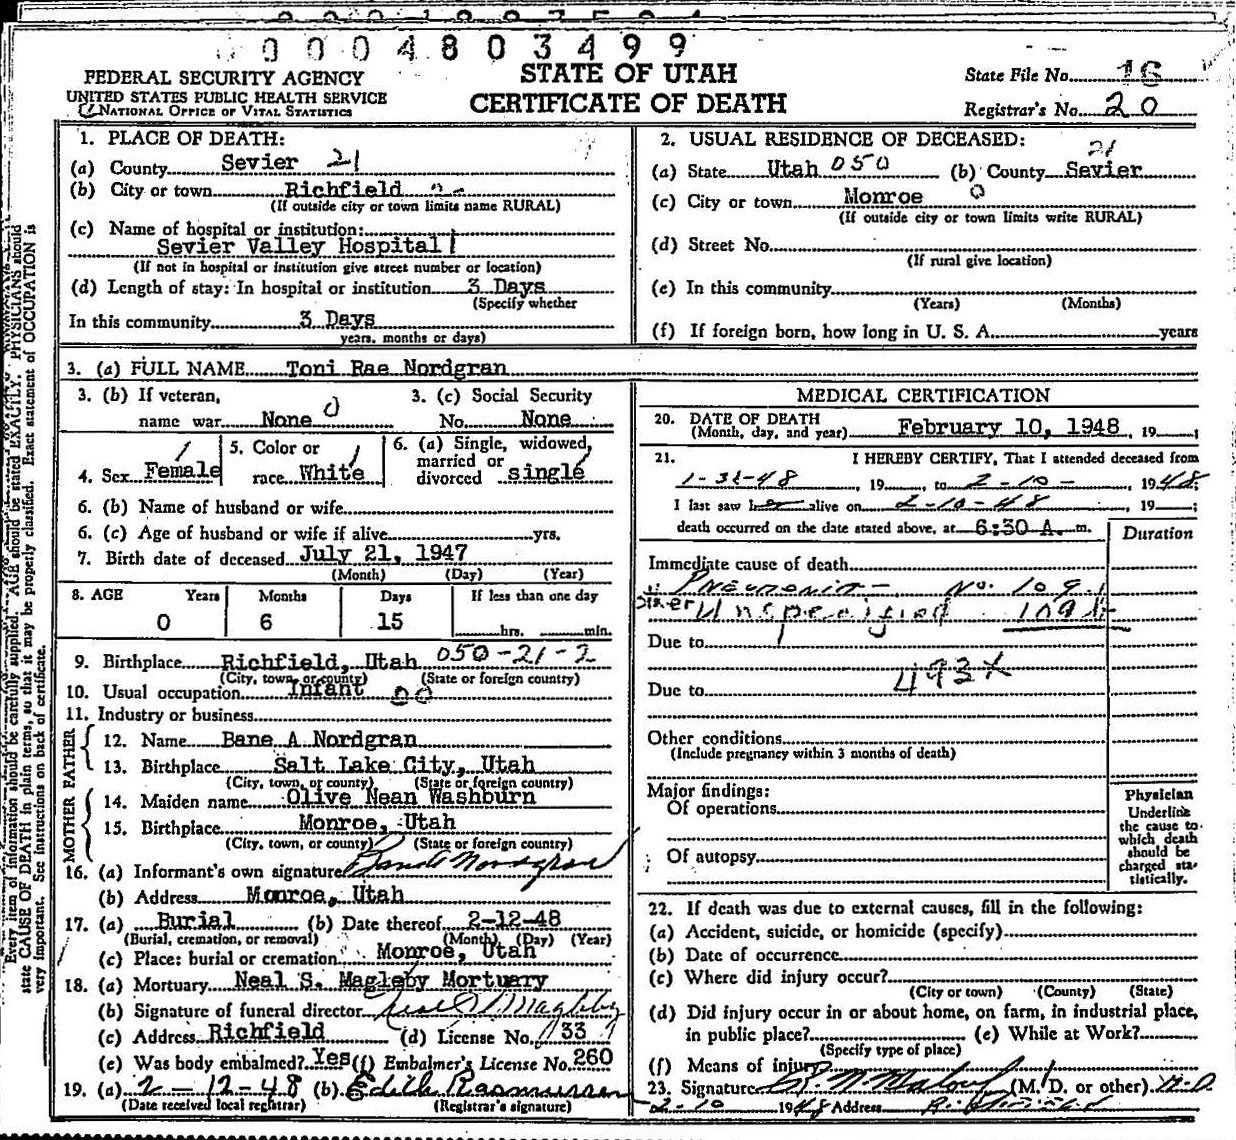 0004803499
FEDERAL SECURITY AGENCY
UNITED STATES PUBLIC HEALTH SERVICE
NATIONAL OFFICE OF VITAL STATISTICS
STATE OF UTAH
CERTIFICATE OF DEATH
State File No. 16
Registrar's No. 20
1. PLACE OF DEATH:
(a) County Sevier 21
(b) City or town Richfield
(If outside city or town limits name RURAL)
(c) Name of hospital or institution:
Sevier Valley Hospital
(If not in hospital or institution give street number or location)
(d) Length of stay: In hospital or institution 3 Days
(Specify whether
In this community 3 Days
years, months or days)
2. USUAL RESIDENCE OF DECEASED:
21
(a) State Utah 050 (b) County Sevier
(c) City or town Monroe 0
(If outside city or town limits write RURAL)
(d) Street No.
(If rural give location)
(e) In this community
(Years) (Months)
(f) If foreign born, how long in U. S. A. years
3. (a) FULL NAME Toni Rae Nordgran
3. (b) If veteran, 3. (c) Social Security
name war None 0 No. None
4. Sex Female 5. Color or race White 6. (a) Single, widowed, married or divorced single
6. (b) Name of husband or wife
6. (c) Age of husband or wife if alive yrs.
7. Birth date of deceased July 21, 1947
(Month) (Day) (Year)
8. AGE Years Months Days If less than one day
0 6 15 hrs. min.
9. Birthplace Richfield, Utah 050-21-2
(City, town, or county) (State or foreign country)
10. Usual occupation Infant 00
11. Industry or business
FATHER
12. Name Bane A Nordgran
13. Birthplace Salt Lake City, Utah
(City, town, or county) (State or foreign country)
MOTHER
14. Maiden name Olive Nean Washburn
15. Birthplace Monroe, Utah
(City, town, or county) (State or foreign country)
16. (a) Informant's own signature Bane A Nordgran
(b) Address Monroe, Utah
17. (a) Burial (b) Date thereof 2-12-48
(Burial, cremation, or removal) (Month) (Day) (Year)
(c) Place: burial or cremation Monroe, Utah
18. (a) Mortuary Neal S. Magleby Mortuary
(b) Signature of funeral director Neal S Magleby
(c) Address Richfield (d) License No. 133
(e) Was body embalmed? Yes (f) Embalmer's License No. 260
19. (a) 2-12-48 (b) Edith Rasmussen
(Date received local registrar) (Registrar's signature)
MEDICAL CERTIFICATION
20. DATE OF DEATH
(Month, day, and year) February 10, 1948, 19 ;
21. I HEREBY CERTIFY, That I attended deceased from
1-31-48, 19 , to 2-10-, 1948;
I last saw h alive on 2-10-48, 19 ;
death occurred on the date stated above, at 6:30 A. m.
Duration
Immediate cause of death
Pneumonia - No. 109
Unspecified 109
Due to
493X
Due to
Other conditions
(Include pregnancy within 3 months of death)
Major findings:
Of operations
Of autopsy
Physician
Underline
the cause to
which death
should be
charged sta-
tistically.
22. If death was due to external causes, fill in the following:
(a) Accident, suicide, or homicide (specify)
(b) Date of occurrence
(c) Where did injury occur?
(City or town) (County) (State)
(d) Did injury occur in or about home, on farm, in industrial place,
in public place? (e) While at Work?
(Specify type of place)
(f) Means of injury
23. Signature (M. D. or other) M.D
2-10 1948 Address Richfield
Every item of information should be carefully supplied. AGE should be stated EXACTLY. PHYSICIANS should
state CAUSE OF DEATH in plain terms, so that it may be properly classified. Exact statement of OCCUPATION is
very important. See instructions on back of certificate.